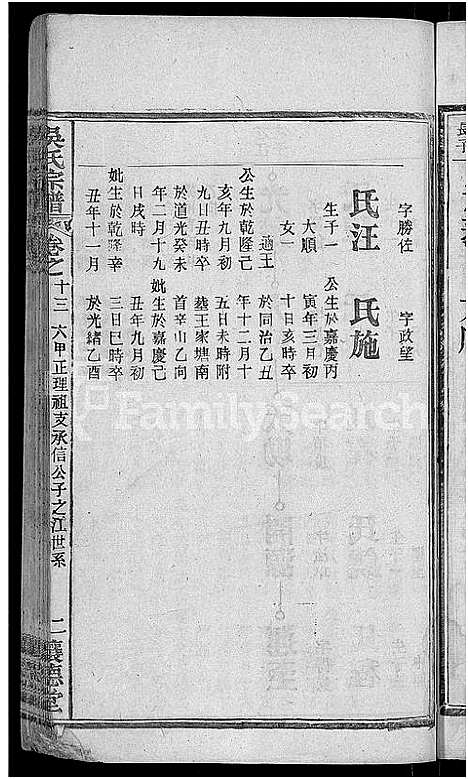 字勝佐
氏汪
生子一
大順
女一
適王
公生於乾隆己
亥年九月初
九日丑時卒
於道光癸未
年二月十九
日戌時
妣生於乾隆辛
丑年十一月
字政望
氏施
公生於嘉慶丙
寅年三月初
十日亥時卒
於同治乙丑
年十二月十
五日未時附
塟王家塘南
首辛山乙向
妣生於嘉慶己
丑年九月初
三日巳時卒
於光緒乙酉
吳氏宗譜
卷之十三
六甲正理祖支承信公子之江世系
二
讓德堂
FamilySearch